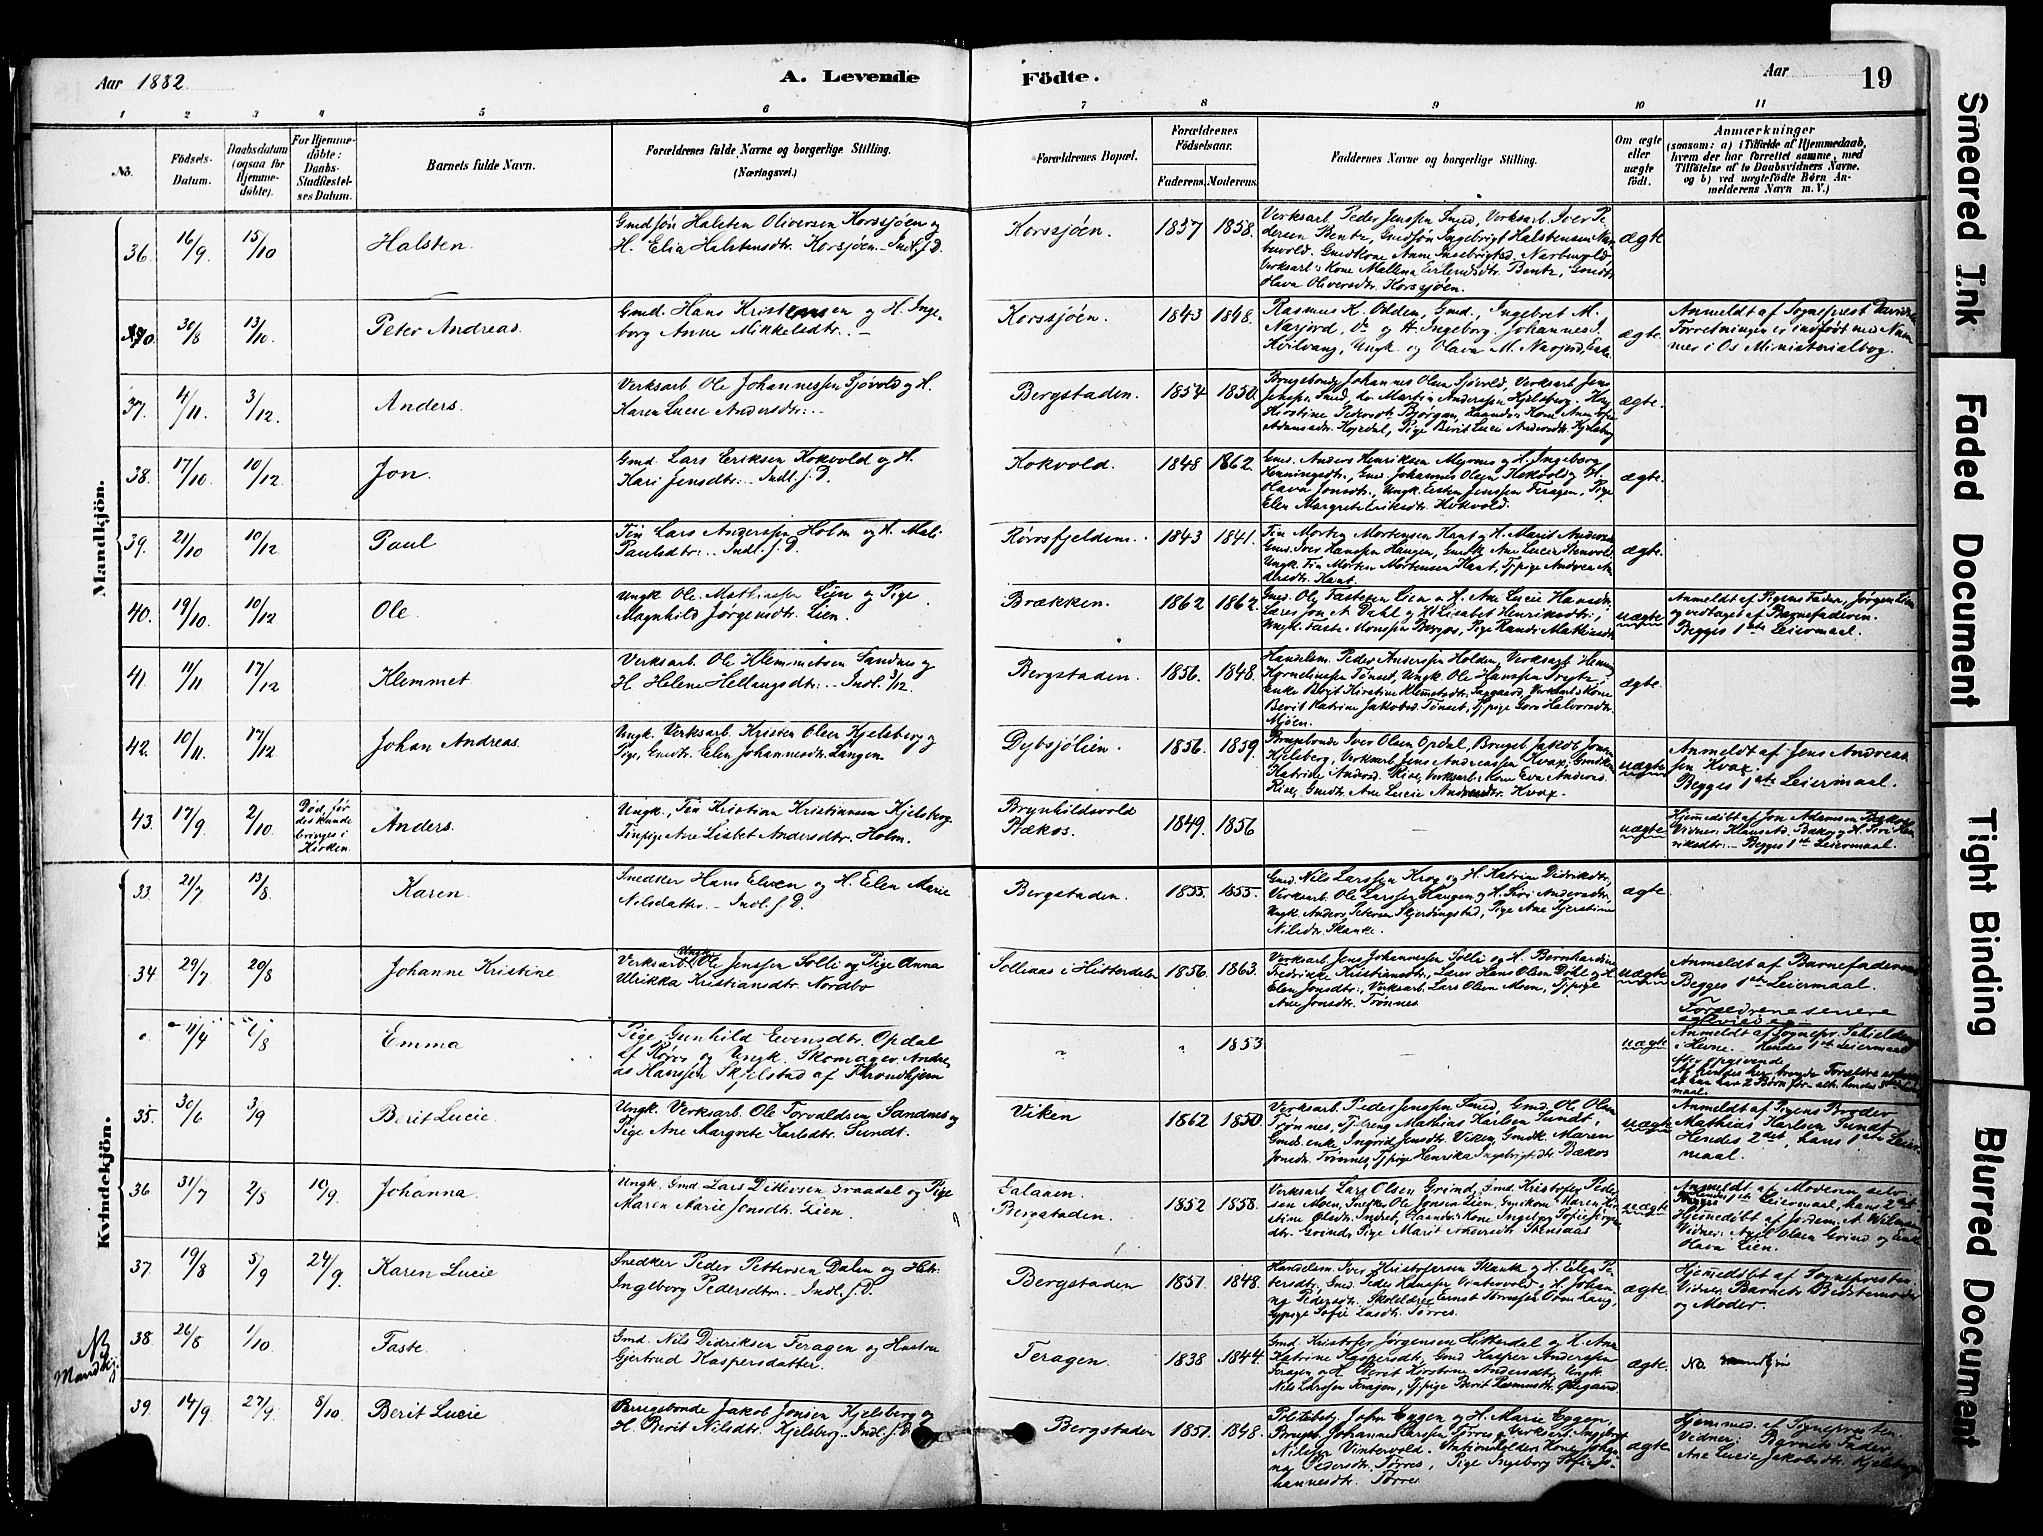 Aar 1882
A. Levende
Födte.
Aar
19
1 2 3 4 5 6 7 8 9 10 11
No.
Födsels-
Datum.
Daabsdatum
(ogsaa for
Hjemme-
döbte).
For Hjemme-
döbte:
Daabs-
Stadfæstel-
ses Datum.
Barnets fulde Navn.
Forældrenes fulde Navne og borgerlige Stilling.
(Næringsvei.)
Forældrenes Bopæl.
Forældrenes
Födselsaar.
Faderens. Moderens.
Faddernes Navne og borgerlige Stilling.
Om ægte
eller
uægte
födt.
Anmærkninger
(saasom: a) i Tilfælde af Hjemmedaab,
hvem der har forrettet samme, med
Tilföielse af to Daabsvidners Navne.
og b) ved uægtefödte Børn An-
melderens Navn m. V.)
Mandkjön.
36. 16/9 15/10 Halsten.
Gmdsøn Halsten Oliversen Korssjøen og
H. Elia Halstensdtr. Korsjøen. Indl. j. D.
Korssjøen. 1857 1858.
Verksarb. Peder Jenssen Smed, Verksarb. Iver Pe-
dersen Bentz, Gmdsøn Ingebrigt Halstensen Nar-
buvold, Gmdkone Anne Ingebrigtsd. Narbuvold,
Verksarb.s Kone Mallena Erlendsdtr. Bentz, Gmdtr.
Olava Oliversdtr. Korssjøen.
ægte
30/8 13/10. Peter Andreas.
Gmd. Hans Kristiansen og H. Inge-
borg Anne Mikkelsdtr.
Korssjøen. 1843 1848.
Rasmus K. Odden, Gmd., Ingebret M.
Narjord, Do og H. Ingeborg. Johannes I.
Kvilvang, Ungk. og Olava M. Narjord, Enke.
ægte.
Anmeldt af Sogneprest
Forretningen er indført med Num-
mer i Os Ministerialbog.
37. 4/11. 3/12. Anders.
Verksarb. Ole Johannessen Sjøvold og H.
Karen Lucie Andersdtr.
Bergstaden. 1854 1850.
Brugsbonde Johannes Olsen Sjøvold, Verksarb. Jens
Jenssen Smed, do. Martin Anderssen Kjelsberg.
Kirstine Pedersdtr. Bjørgan, Kone Ane
Adamsdtr. Pige Berit Lucie Andersdtr. Kjelsberg
ægte.
38. 17/10. 10/12. Jon.
Gmd. Lars Eriksen Kokvold og H.
Kari Jensdtr. Indl. j. D.
Kokvold. 1848 1862.
Gmd. Anders Henriksen og H. Ingeborg
Henningsdtr, Gmd. Johannes Olsen Kokvold og H.
Olava Jonsdtr., Ungk. Esten Jenssen Feragen, Pige
Elen Margrete Eriksdtr. Kokvold.
ægte.
39. 21/10 10/12. Paul
Fin Lars Anderssen Holm og H. Mali
Paulsdtr. Indl. j. D.
Rørosfjeldem. 1843 1841.
Fin Morten Mortensen Kant og H. Marit Andersd.
Gmd. Iver Hanssen Haugen, Gmdk. Ane Lucie Stenvold
Ungk. Fin Morten Mortensen Kant, Tjpige Andrea An-
dersdtr. Kant.
ægte.
40. 19/10. 10/12 Ole.
Ungk. Ole Mathiassen Lien og Pige
Magnhild Jørgensdtr. Lien.
Brækken. 1862 1862.
Gmd. Ole Fastesen Lien og H. Ane Lucie Hansdtr.
Lars Jon A. Dahl og H. Lisabet Henriksdtr.,
Ungk. Faste Monsen Borgos, Pige Randi Mathiasdtr
uægte
Anmeldt af Pigens Fader, Jørgen Lien
og vedtaget af Barnefaderen.
Begges 1ste Leiermaal.
41. 11/11 17/12 Klemmet
Verksarb. Ole Klemmetsen Sandnes og
H. Helene Hellingsdtr. Indl. 3/12.
Bergstaden. 1856. 1848.
Handelsm. Peder Anderssen Holden, Verksarb. Henning
Kornelinssen Tønset, Ungk. Ole Hanssen
Enke Birgit Kirstine Klemmetsdtr. Verksarb.s Kone
Berit Katrine Jakobsd. Tønset, Tjpige Goro Halvorsdtr.
Mjøen.
ægte.
42. 10/11. 17/12 Johan Andreas.
Ungk. Verksarb. Kristen Olsen Kjelsberg og
Pige, Gmdtr. Elen Johannesdtr. Langen
Dybsjølien. 1856. 1859.
Brugsbonde Iver Olsen Opdal, Brugsb. Jakob Jonsen
Kjelsberg, Verksarb. Jens Andreassen Kvax, Gmdkone
Katrine Andersd. Riise, Verksarb.s Kone Eva Andersd.
Riise, Gmdtr. Ane Lucie Andersdtr. Kvax.
uægte
Anmeldt af Jens Andreas-
sen Kvax.
Begges 1ste Leiermaal.
43. 17/9 2/10.
Død, før
det kunde
bringes i
Kirken.
Anders.
Ungk., Fin Kristian Kristiansen Kjelsberg
Finpige Ane Lisbet Andersdtr. Holm.
Brynhildsvold
Bækos. 1849. 1856
uægte
Hjemmedøbt af Jon Adamsen Bækos
Vidner: Klaus Ad. Bækos og H. Siri Hen-
riksdtr. Begges 1ste Leiermaal.
Kvindekjön.
33. 21/7 13/8 Karen.
Snedker Hans Elven og H. Elen Marie
Nilsdatter. Indl. j. D.
Bergstaden. 1855. 1855.
Gmd. Nils Larssen Krog og H. Katrin Didriksdtr,
Verksarb. Ole Larssen Haugen og H. Siri Andersdtr,
Ungk. Anders Petersen Skjerdingstad, Pige Ane Kjerstine
Nilsdtr. Skanke.
ægte
34 29/7 20/8 Johanne Kristine
Ungk.
Verksarb. Ole Jenssen Solli og Pige Anna
Ulrikka Kristiansdtr. Nordbo
Sollinas i Hitterdalen 1856. 1863.
Verksarb. Jens Johannessen Solli og H. Bernhardine
Fredrikke Kristiansdtr, Lærer Hans Olsen Døhl og H.
Elen Jonsdtr., Verksarb. Lars Olsen Moen, Tjpige
Ane Jonsdtr. Trønnes.
uægte
Anmeldt af Barnefaderen
Begges 1ste Leiermaal.
Forældrene senere
11/4 6/8 Emma
Pige Gunhild Evensdtr. Opdal
af Røros og Ungk. Skomager Andre-
as Hanssen Skjelstad af Throndhjem
" " 1853
uægte
Anmeldt af Sognepr.
i Hevne. Hendes 1ste Leiermaal
efter opgivende.
35. 30/6 3/9 Berit Lucie.
Ungk. Verksarb. Ole Torvaldsen Sandnes og
Pige Ane Margrete Karlsdtr. Sundt.
Viken 1862 1850.
Verksarb. Peder Jenssen Smed, Gmd. Ole Olsen
Trønnes, Tjdreng Mathias Karlsen Sundt,
Gmd. enke Ingrid Jensdtr. Viken, Gmdk. Maren
Jonsdtr. Trønnes, Tjpige Henrika Ingebrigtsdtr. Bækos
uægte
Anmeldt af Pigens Broder
Mathias Karlsen Sundt.
Hendes 2det, hans 1ste Leier-
maal.
36 31/7 2/8 10/9. Johanna.
Ungk. Gmd. Lars Ditlevsen Graadal og Pige
Maren Marie Jonsdtr. Lien.
Galaaen.
Bergstaden. 1852 1858.
Verksarb. Lars Olsen Grind, Gmd. Kristofer Peder-
sen Moen, Snedker Ole Jonsen Lien, Gmdkone Maren Kir-
stine Olsdtr. Indset, Kone Inge
dtr. Grind, Pige Marit Andersdtr. Stensaas
uægte
Anmeldt af Moderen selv.
Hendes 1ste Leiermaal, hans 2det
Hjemmedøbt af Jordem. A. Wilmann
Vidner: Axel Olsen Grind og Enke
Olava Lien.
37. 19/8 5/9 24/9. Karen Lucie
Snedker Peder Pettersen Dalen og Hustr.
Ingeborg Pedersdtr. Indl. j. D.
Bergstaden 1851. 1848.
Handelsm. Iver Kristofersen Skanke og H. Elen Pe-
dersdtr, Gmd. Peder Hanssen Vintervold og H. Johan-
na Pedersdtr. Skolelærer Ernst Tørressen
Tjpige Sofie Larsdtr. Tørres.
ægte.
Hjemmedøbt af Sognepresten,
Vidner: Barnets Bestemoder
og Moder.
NB
Mandkj.
38 26/8 1/10. Faste.
Gmd. Nils Didriksen Feragen og Hustru
Gjertrud Kaspersdatter.
Feragen. 1838 1844.
Gmd. Kristofer Jørgensen Hitterdal og H. Ane
Katrine Kaspersdtr, Gmd. Kasper Anderssen
Feragen og H. Berit Kirstine Andersdtr, Ungk.
Nils Larssen Feragen, Tjpige Berit Rasmusdtr. Ødegaard
ægte
NB. Mandkjøn
39. 14/9 27/9. 8/10. Berit Lucie
Brugsbonde Jakob Jonsen Kjelsberg og
H. Berit Nilsdtr. Kjelsberg. Indl. j. D.
Bergstaden 1851. 1848.
Politibetj. John Eggen og H. Marie Eggen,
Brugsb. Johannes Larssen Tørres, Verksarb. Ingebrigt
Nilsen Vintervold. Stationsholders Kone Johan-
na Pedersdtr. Tørres, Pige Ingeborg Sofie Jo-
hannesdtr. Tørres
ægte
Hjemmed. af Sognepresten.
Vidner: Barnets Fader,
Ane Lucie Jakobsdtr. Kjelsberg
Smeared Ink
Faded Document
Tight Binding
Blurred Document